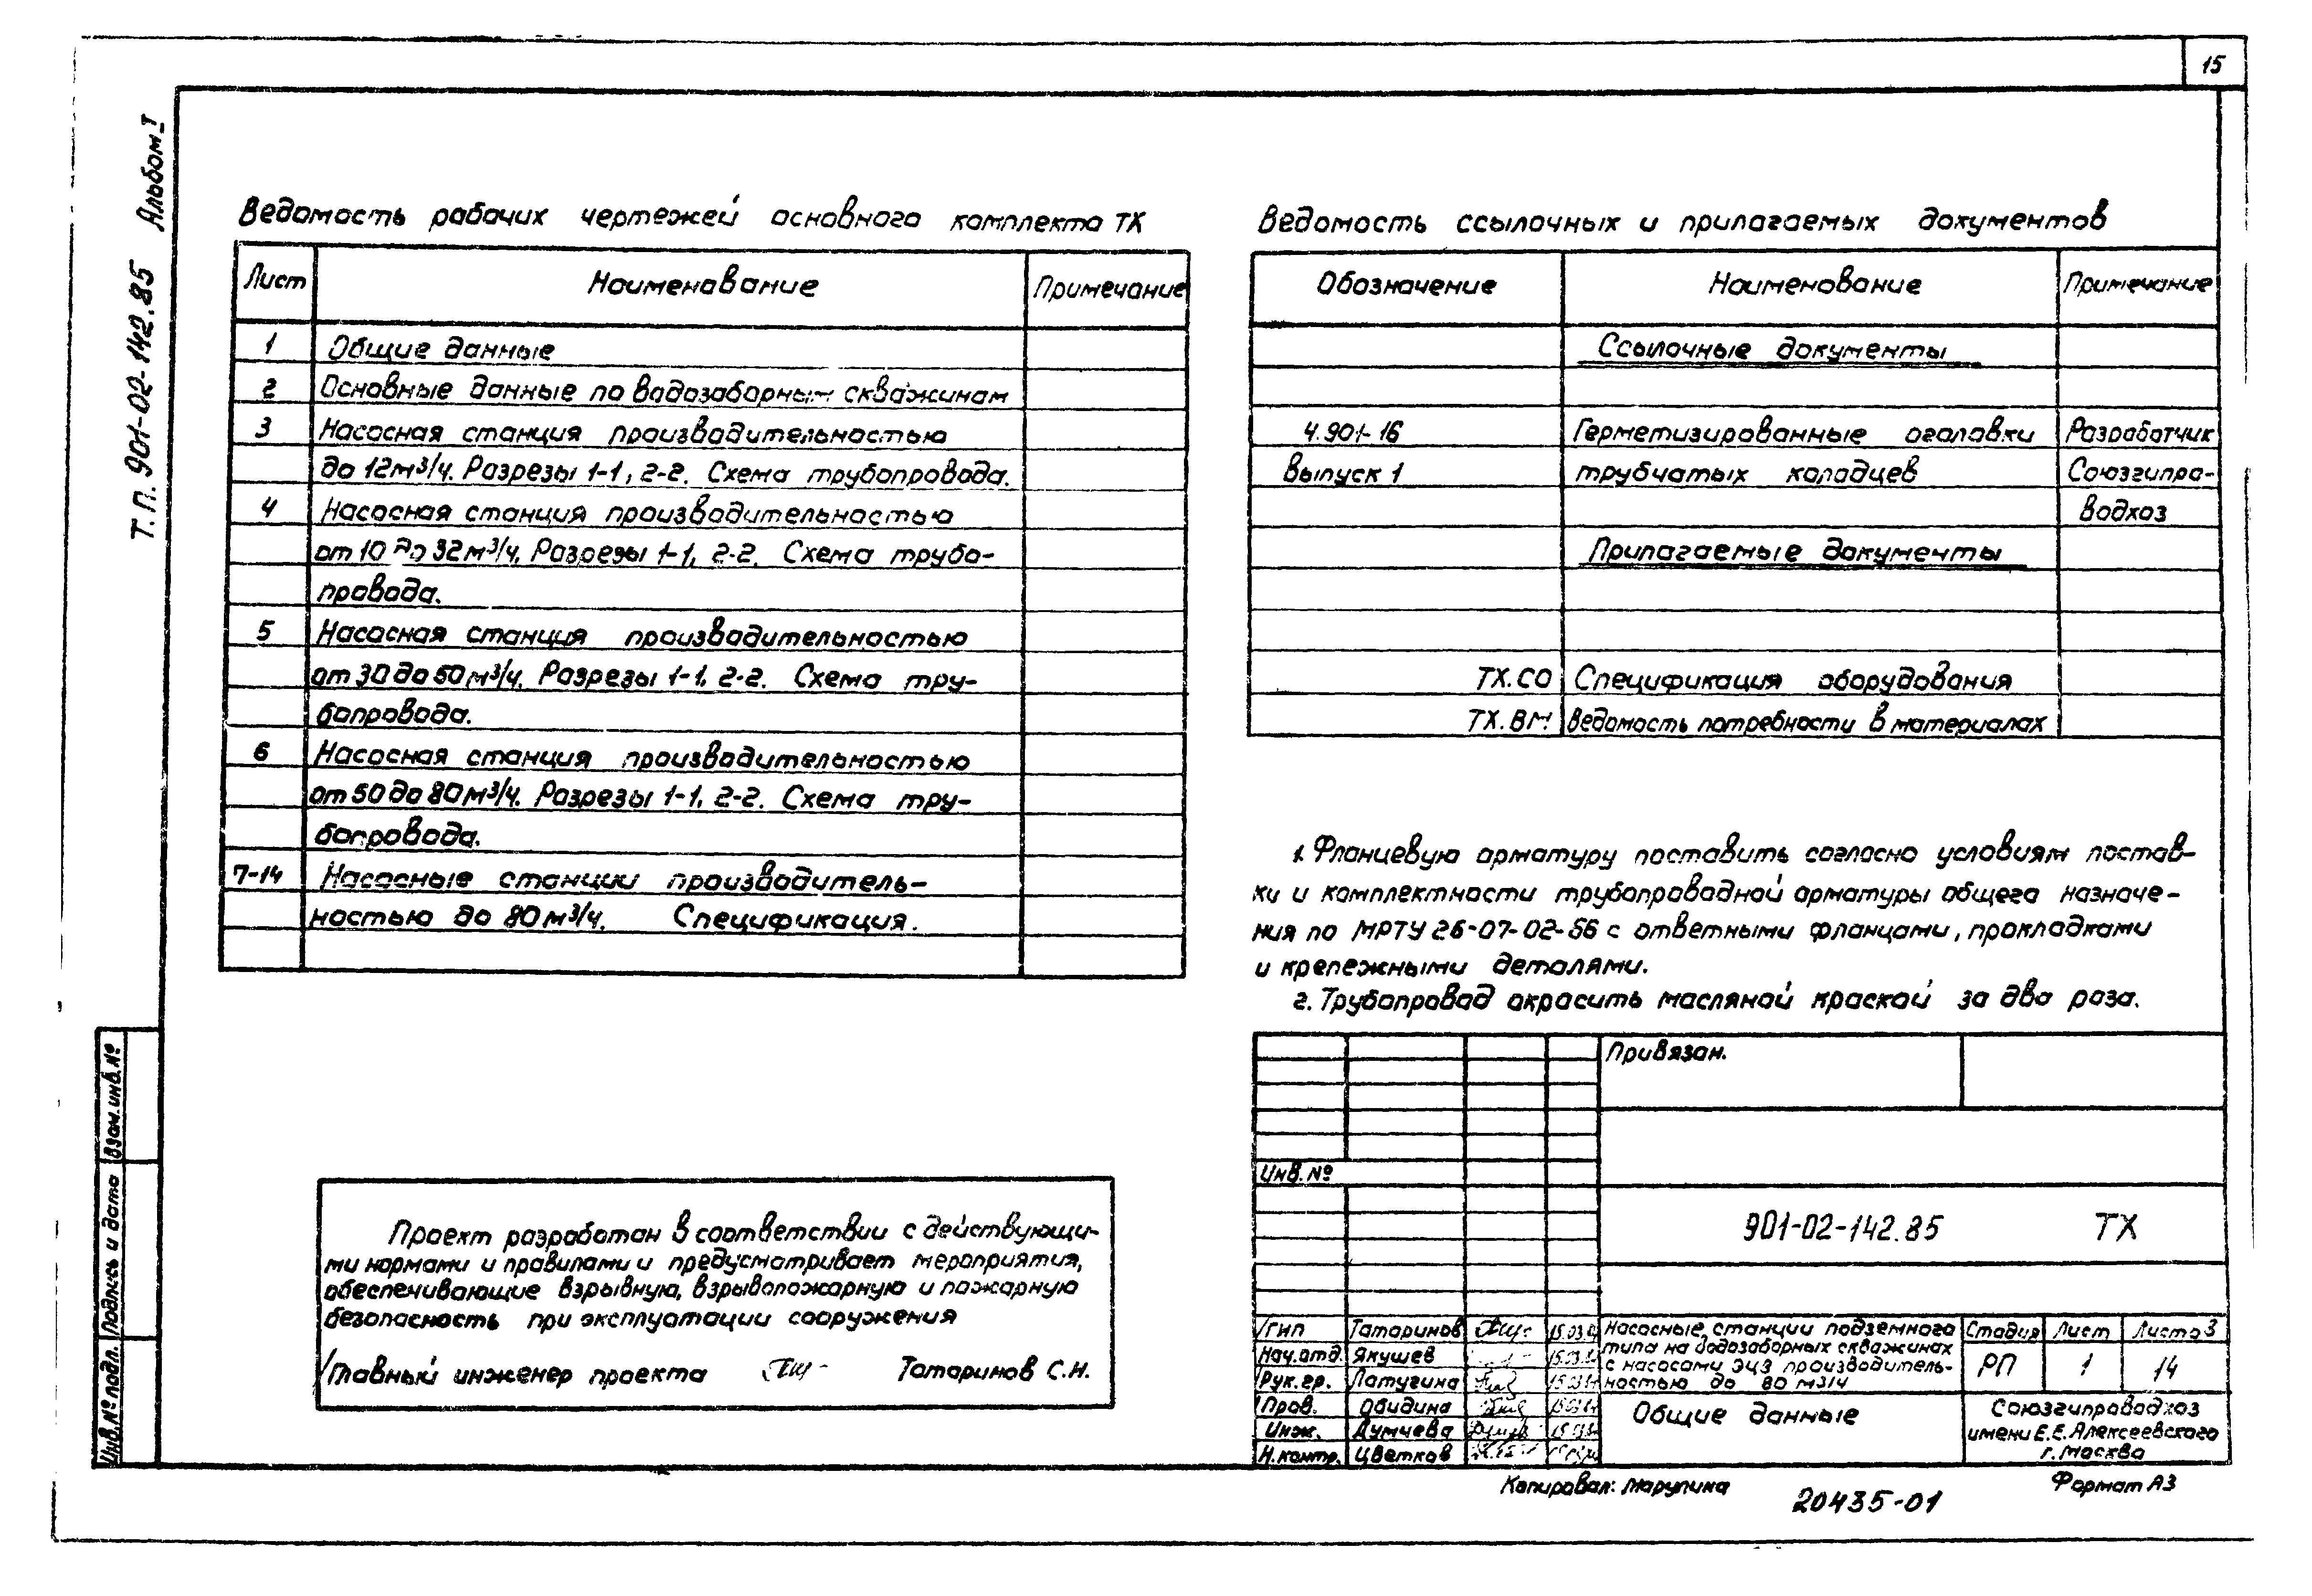 15
Т.П. 901-02-142.85 Альбом I
Ведомость рабочих чертежей основного комплекта ТХ
Лист Наименование Примечание
1 Общие данные
2 Основные данные по водозаборным скважинам
3 Насосная станция производительностью
до 12м³/ч. Разрезы 1-1, 2-2. Схема трубопровода.
4 Насосная станция производительностью
от 10 до 32м³/ч. Разрезы 1-1, 2-2. Схема трубо-
провода.
5 Насосная станция производительностью
от 30 до 50 м³/ч. Разрезы 1-1, 2-2. Схема тру-
бопровода.
6 Насосная станция производительностью
от 50 до 80 м³/ч. Разрезы 1-1, 2-2. Схема тру-
бопровода.
7-14 Насосные станции производитель-
ностью до 80 м³/ч. Спецификация.
Ведомость ссылочных и прилагаемых документов
Обозначение Наименование Примечание
Ссылочные документы
4.901-16 Герметизированные оголовки Разработчик
Выпуск 1 трубчатых колодцев Союзгипро-
водхоз
Прилагаемые документы
ТХ.СО Спецификация оборудования
ТХ.ВМ Ведомость потребности в материалах
1. Фланцевую арматуру поставить согласно условиям постав-
ки и комплектности трубопроводной арматуры общего назначе-
ния по МРТУ 26-07-02-66 с ответными фланцами, прокладками
и крепежными деталями.
2. Трубопровод окрасить масляной краской за два раза.
Проект разработан в соответствии с действующи-
ми нормами и правилами и предусматривает мероприятия,
обеспечивающие взрывную, взрывопожарную и пожарную
безопасность при эксплуатации сооружения
Главный инженер проекта Татаринов С.Н.
Взам. инв. №
Подпись и дата
Инв. № подл.
Привязан.
Инв. №
901-02-142.85 ТХ
ГИП Татаринов
Нач. отд. Якушев
Рук. гр. Латугина
Пров. Обидина
Инж. Думчева
Н. контр. Цветков
Насосные станции подземного
типа на водозаборных скважинах
с насосами ЭЦВ производитель-
ностью до 80 м3/ч
Стадия Лист Листов
РП 1 14
Общие данные
Союзгипроводхоз
имени Е.Е. Алексеевского
г. Москва
Копировал: Марулина
20435-01
Формат А3